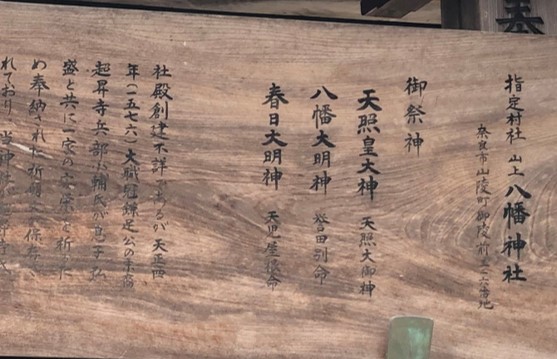 指定村社 山上八幡神社
奈良市山陵町御陵前
御祭神
天照皇大神 天照大御神
八幡大明神 誉田別命
春日大明神 天児屋根命
社殿創建不詳であるが天正四
年(一五七六)大職冠鎌足公の末裔
超昇寺兵部
盛と共に一家の安泰を祈った
め奉納された祈願
れており